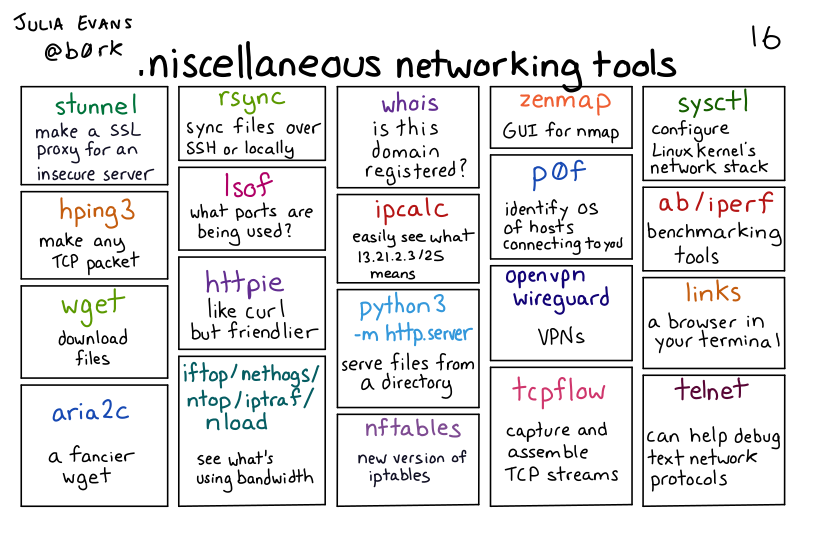 JULIA EVANS
@b0rk
16
.niscellaneous networking tools
stunnel
make a SSL
proxy for an
insecure server
hping3
make any
TCP packet
wget
download
files
aria2c
a fancier
wget
rsync
sync files over
SSH or locally
lsof
what ports are
being used?
httpie
like curl
but friendlier
iftop/nethogs/
ntop/iptraf/
nload
see what's
using bandwidth
whois
is this
domain
registered?
ipcalc
easily see what
13.21.2.3/25
means
python3
-m http.server
serve files from
a directory
nftables
new version of
iptables
zenmap
GUI for nmap
p0f
identify OS
of hosts
connecting to you
openvpn
wireguard
VPNs
tcpflow
capture and
assemble
TCP streams
sysctl
configure
Linux kernel's
network stack
ab/iperf
benchmarking
tools
links
a browser in
your terminal
telnet
can help debug
text network
protocols